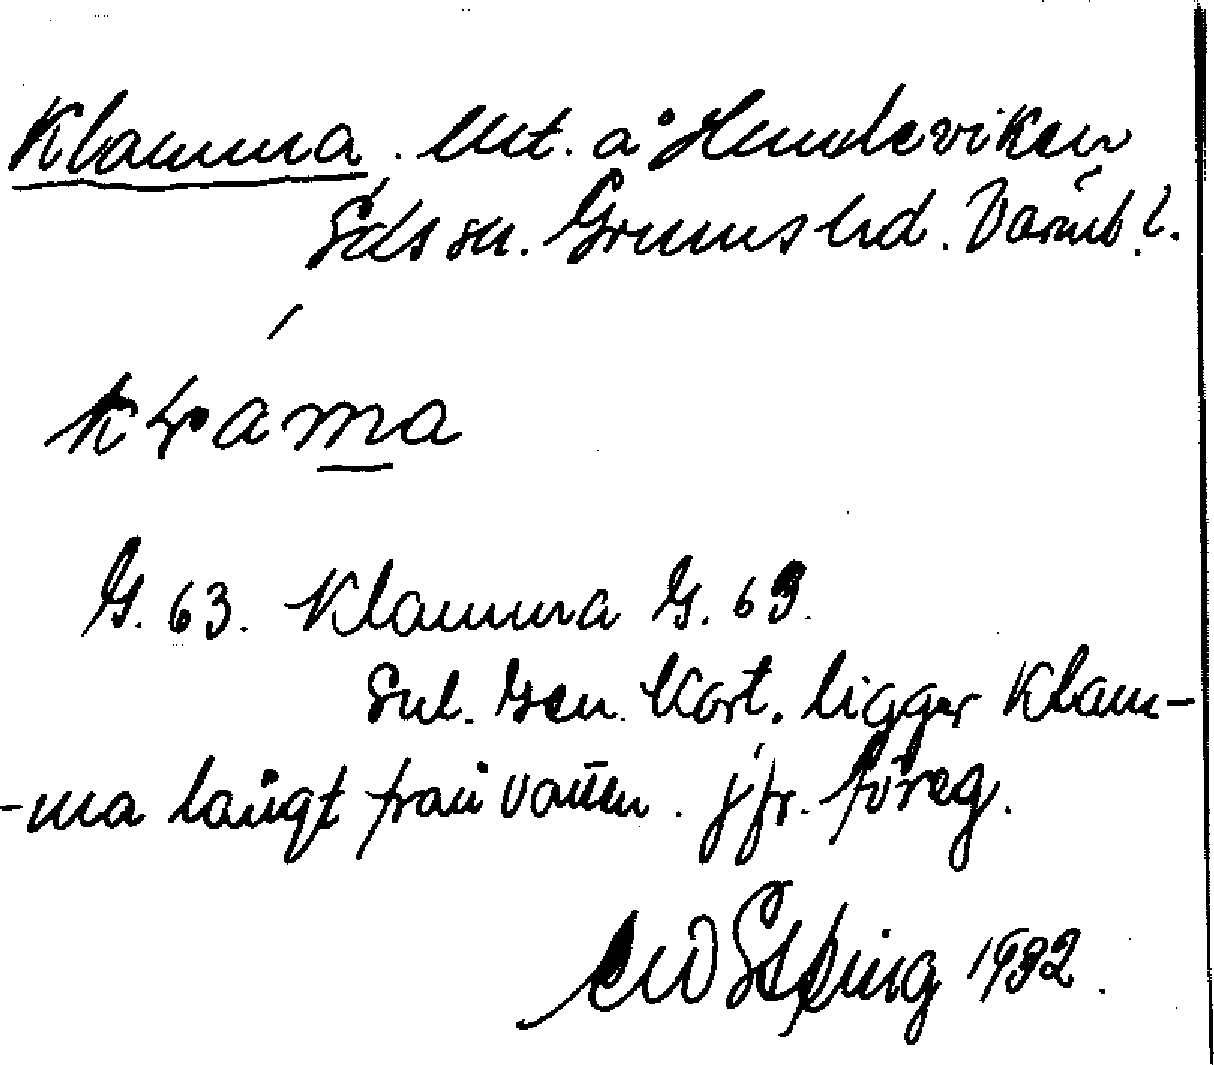 Klamma. Utt. a° Hundeviken
Eds sn. Grums hd. Värml.
klama
G. 63. Klamma G. 69.
Enl. Gen. Kort. ligger Klam-
-ma långt från vatten. jfr. föreg.
1932.